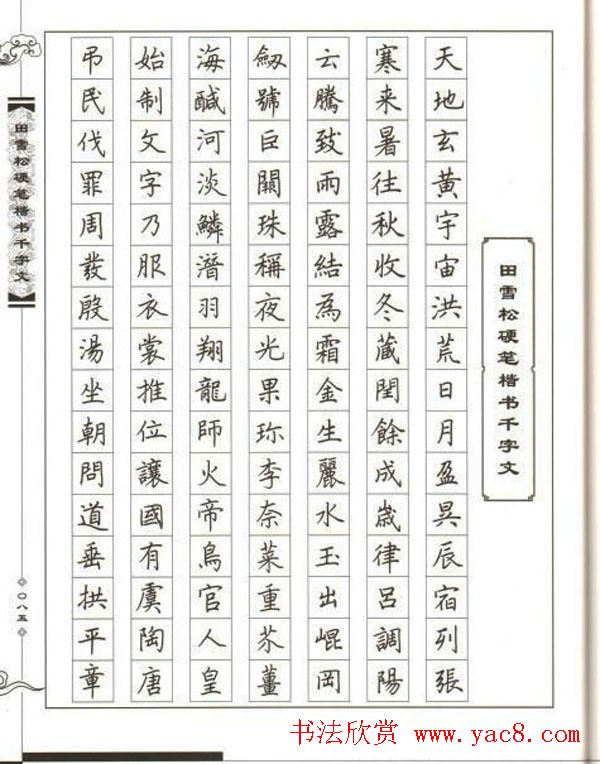 田雪松硬笔楷书千字文
天地玄黄宇宙洪荒日月盈昃辰宿列張
寒来暑往秋收冬藏閏餘成嵗律呂調陽
云騰致雨露結為霜金生麗水玉出崐岡
劔號巨闕珠稱夜光果珎李奈菜重芥薑
海醎河淡鱗潛羽翔龍師火帝鳥官人皇
始制文字乃服衣裳推位讓國有虞陶唐
弔民伐罪周發殷湯坐朝問道垂拱平章
田雪松硬笔楷书千字文
〇八五
书法欣赏 www.yac8.com